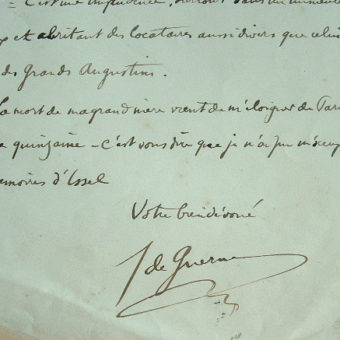 = C'est une imprudence,
et abritant des locataires aussi divers que celui
des Grands Augustins.
La mort de ma grand mère vient de m'éloigner de Par
quinzaine - c'est vous dire que je n'ai pu m'occup
émoires d'Issel
Votre bien dévoué
J de Guerne